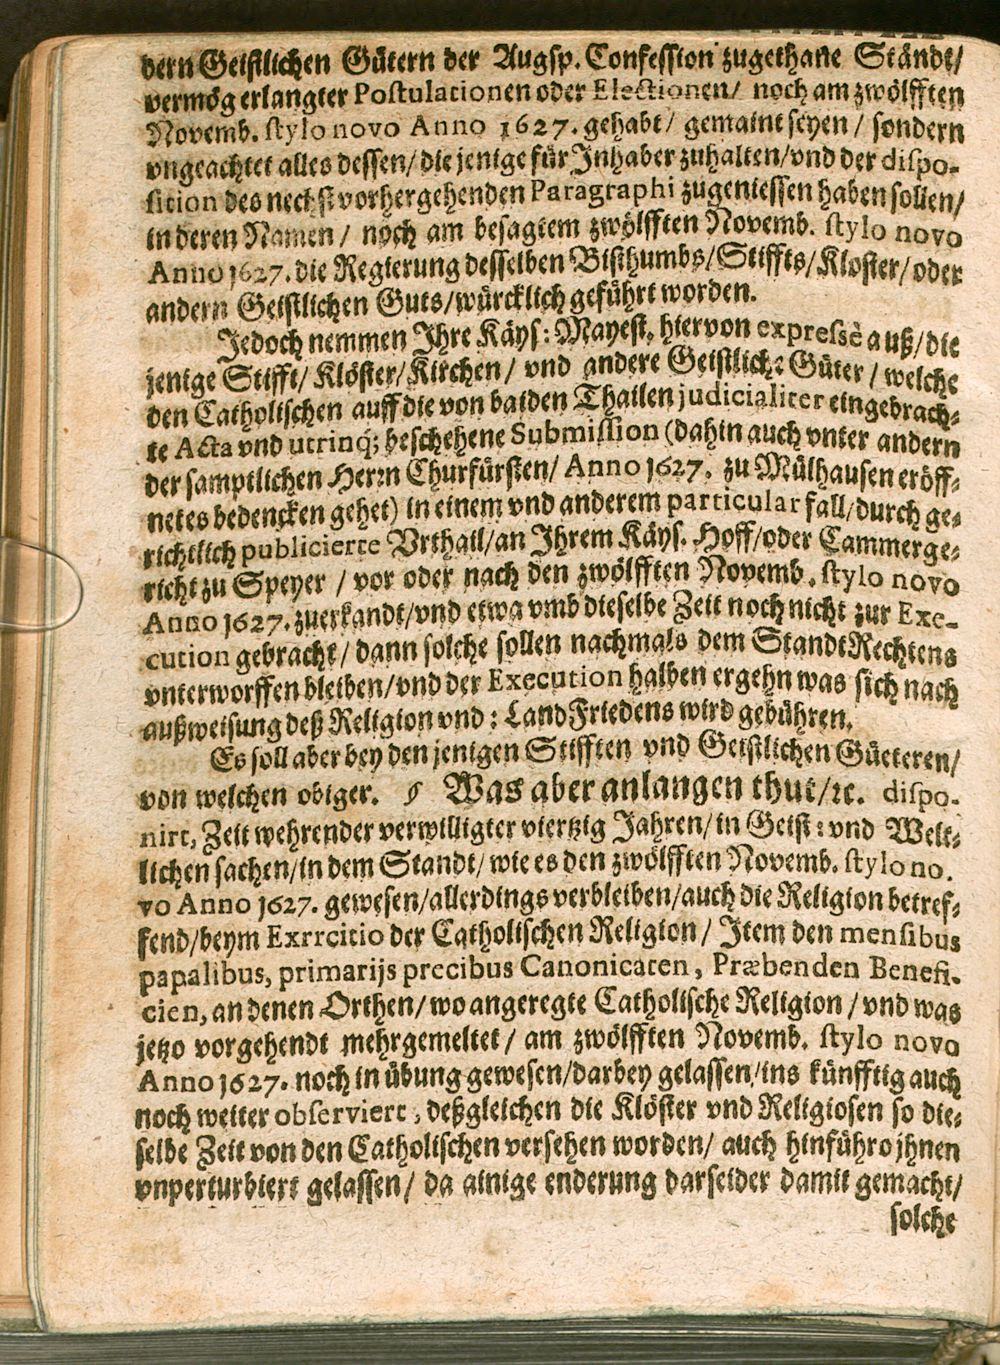 dern Geistlichen Gütern der Augsp. Confession zugethane Ständt/
vermög erlangter Postulationen oder Electionen/ noch am zwölfften
Novemb. stylo novo Anno 1627. gehabt/ gemaint seyen/ sondern
vngeachtet alles dessen/ die jenige für Inhaber zuhalten/vnd der dispo-
sition des nechst vorhergehenden Paragraphi zugeniessen haben sollen/
in deren Namen/ noch am besagtem zwölfften Novemb. stylo novo
Anno 1627. die Regierung desselben Bisthumbs/Stiffts/Kloster/oder
andern Geistlichen Guts/würcklich geführt worden.
Jedoch nemmen Ihre Käys: Mayest. hiervon expressè auß/die
jenige Stifft/ Klöster/Kirchen/ vnd andere Geistliche Güter/ welche
den Catholischen auff die von baiden Thailen judicialiter eingebrach-
te Acta vnd utrinq; beschehene Submission (dahin auch vnter andern
der samptlichen Herrn Churfürsten/ Anno 1627. zu Mülhausen eröff-
netes bedencken gehet) in einem vnd anderem particular fall/durch ge-
richtlich publicierte Vrthail/an Ihrem Käys. Hoff/oder Cammerge-
richt zu Speyer / vor oder nach den zwölfften Novemb. stylo novo
Anno 1627. zuerkandt/vnd etwa vmb dieselbe Zeit noch nicht zur Exe-
cution gebracht/ dann solche sollen nachmals dem Standt Rechtens
vnterworffen bleiben/vnd der Execution halben ergehn was sich nach
außweisung deß Religion vnd: LandFriedens wird gebühren.
Es soll aber bey den jenigen Stifften vnd Geistlichen Güeteren/
von welchen obiger. § Was aber anlangen thut/ꝛc. dispo-
nirt, Zeit wehrender verwilligter viertzig Jahren/in Geist: vnd Welt-
lichen sachen/in dem Standt/ wie es den zwölfften Novemb. stylo no.
vo Anno 1627. gewesen/allerdings verbleiben/auch die Religion betref-
fend/beym Exrrcitio der Catholischen Religion/ Item den mensibus
papalibus, primarijs precibus Canonicaten, Præbenden Benefi-
cien, an denen Orthen/wo angeregte Catholische Religion/vnd was
jetzo vorgehendt mehrgemeltet/ am zwölfften Novemb. stylo novo
Anno 1627. noch in übung gewesen/darbey gelassen/ins künfftig auch
noch weiter observiert, deßgleichen die Klöster vnd Religiosen so die-
selbe Zeit von den Catholischen versehen worden/ auch hinführo ihnen
vnperturbiert gelassen/ da ainige enderung darseider damit gemacht/
solche